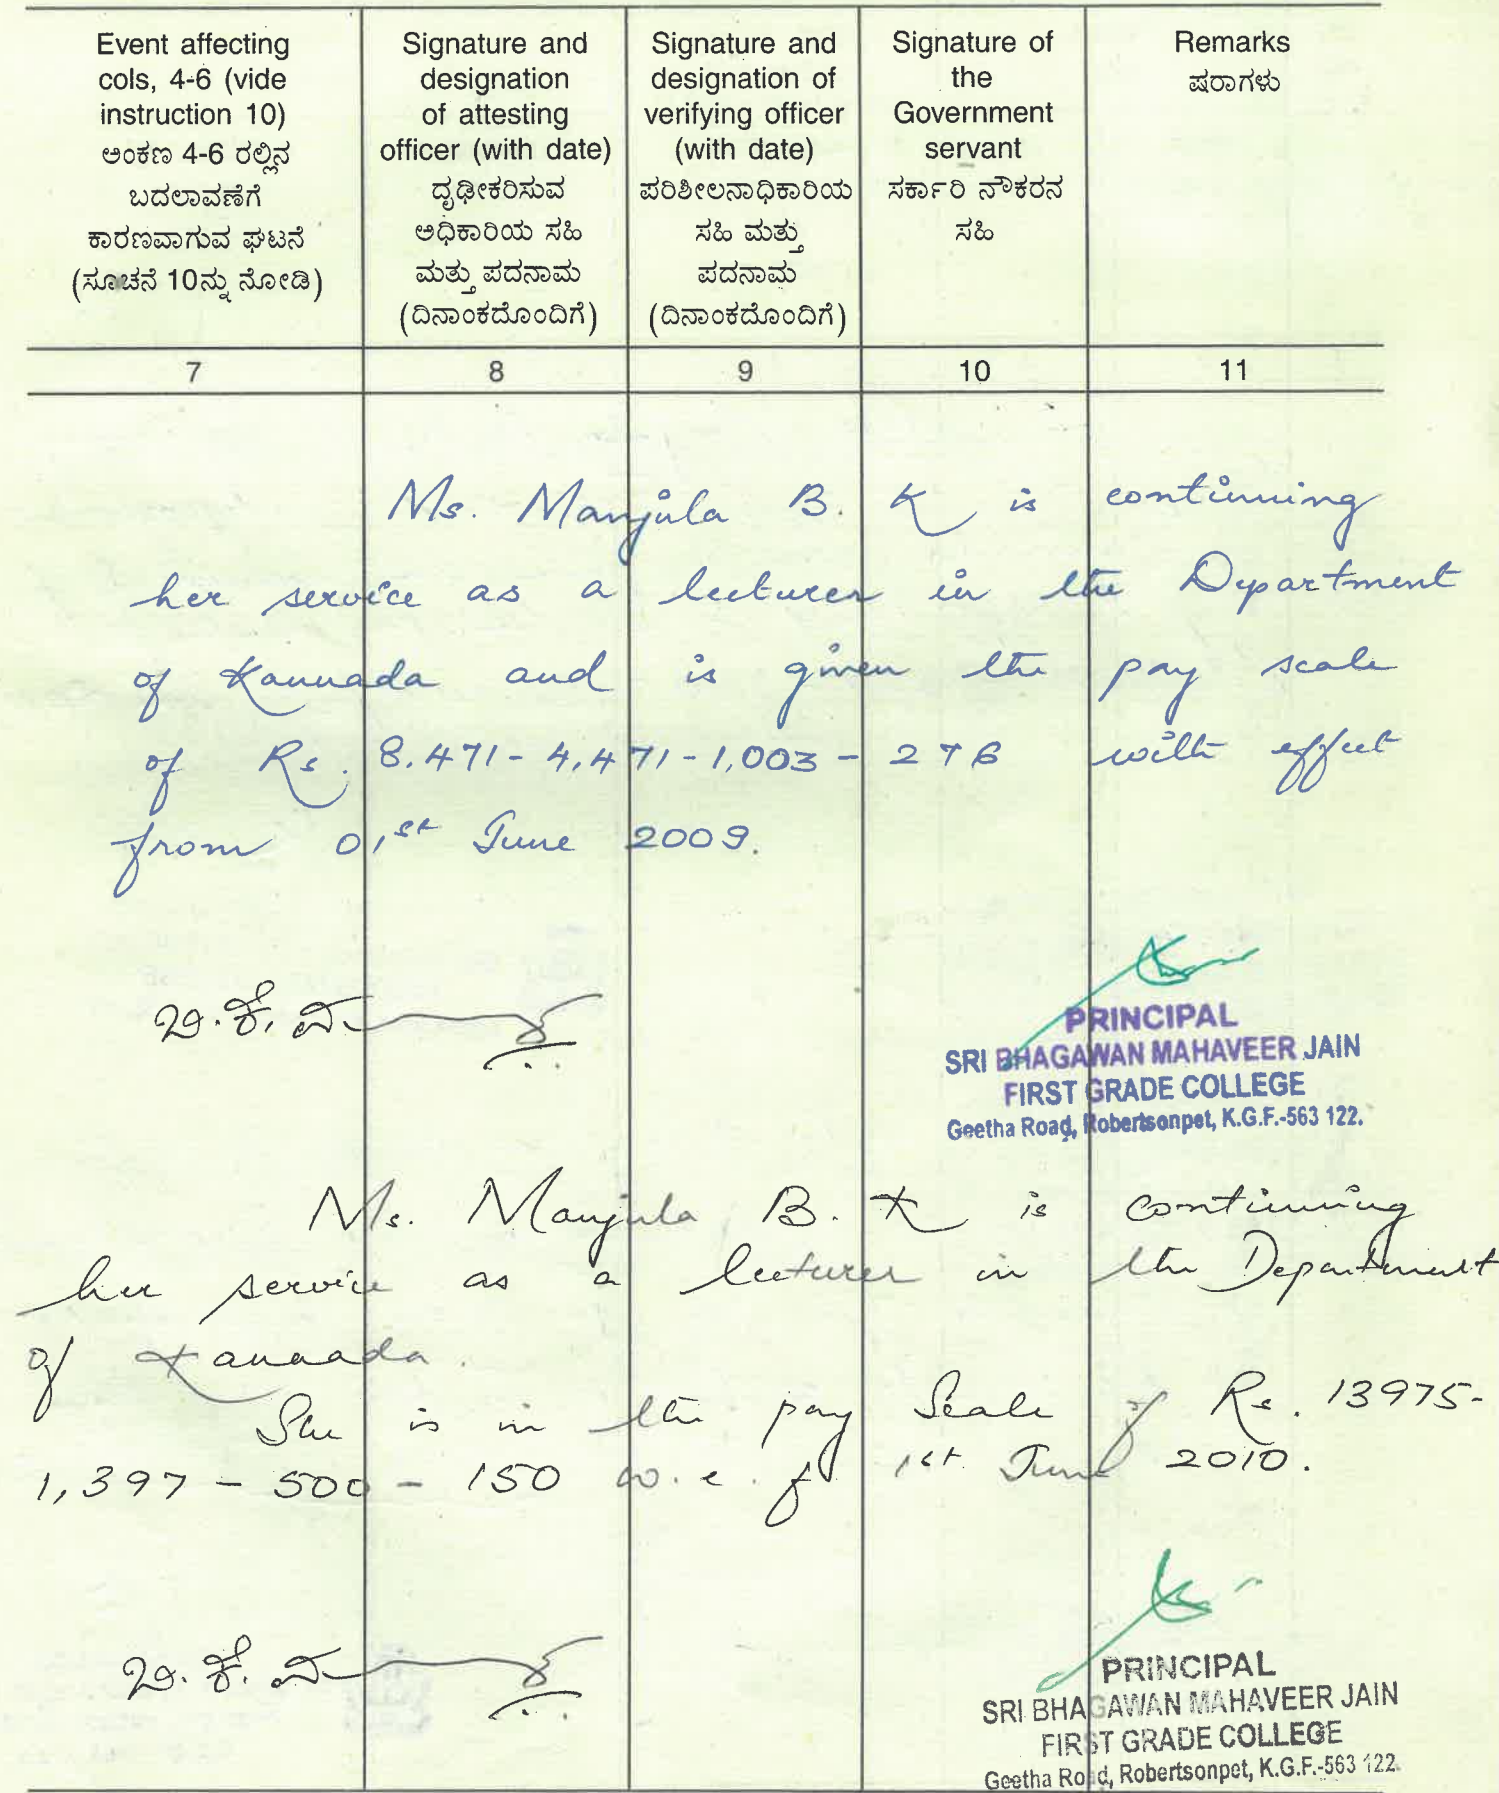 Event affecting
cols, 4-6 (vide
instruction 10)
ಅಂಕಣ 4-6 ರಲ್ಲಿನ
ಬದಲಾವಣೆಗೆ
ಕಾರಣವಾಗುವ ಘಟನೆ
(ಸೂಚನೆ 10ನ್ನು ನೋಡಿ)
Signature and
designation
of attesting
officer (with date)
ದೃಢೀಕರಿಸುವ
ಅಧಿಕಾರಿಯ ಸಹಿ
ಮತ್ತು ಪದನಾಮ
(ದಿನಾಂಕದೊಂದಿಗೆ)
Signature and
designation of
verifying officer
(with date)
ಪರಿಶೀಲನಾಧಿಕಾರಿಯ
ಸಹಿ ಮತ್ತು
ಪದನಾಮ
(ದಿನಾಂಕದೊಂದಿಗೆ)
Signature of
the
Government
servant
ಸರ್ಕಾರಿ ನೌಕರನ
ಸಹಿ
Remarks
ಷರಾಗಳು
7 8 9 10 11
Ms. Manjula B. K is continuing
her service as a lecturer in the Department
of Kannada and is given the pay scale
of Rs. 8,471 - 4,471 - 1,003 - 276 with effect
from 01st June 2009.
ಬಿ.ಕೆ.
PRINCIPAL
SRI BHAGAWAN MAHAVEER JAIN
FIRST GRADE COLLEGE
Geetha Road, Robertsonpet, K.G.F.-563 122.
Ms. Manjula B. K is continuing
her service as a lecturer in the Department
of Kannada.
She is in the pay Scale of Rs. 13975-
1,397 - 500 - 150 w.e.f 1st June 2010.
ಬಿ.ಕೆ.
PRINCIPAL
SRI BHAGAWAN MAHAVEER JAIN
FIRST GRADE COLLEGE
Geetha Road, Robertsonpet, K.G.F.-563 122.